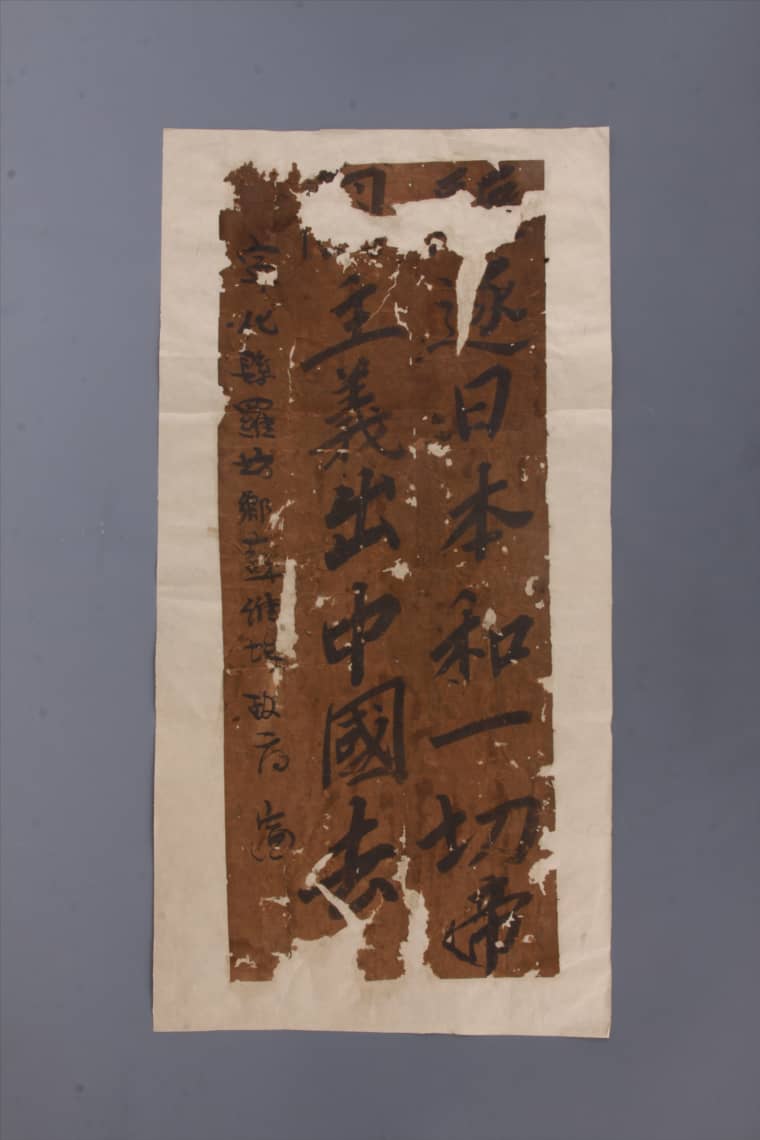 逐日本和一切帝
主義出中國去
寧化縣羅坊鄉蘇維埃政府 宣